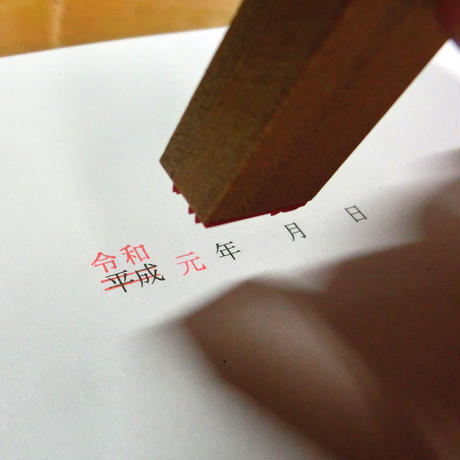 令和
平成 元年 月 日